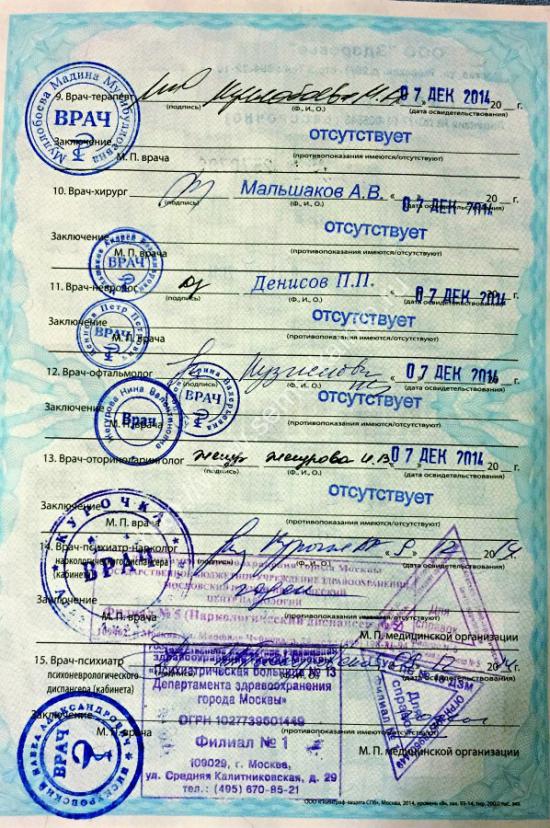 ООО "Здоровье"
Муллобоева Мадина Мулобуллоевна
ВРАЧ
9. Врач-терапевт Муллобоева М. 07 ДЕК 2014 20 г.
(подпись) (Ф., И., О.) (дата освидетельствования)
Заключение отсутствует
М. П. врача (противопоказания имеются/отсутствуют)
10. Врач-хирург Мальшаков А.В. « 07 ДЕК 2014 20 г.
(подпись) (Ф., И., О.) (дата освидетельствования)
Заключение отсутствует
М. П. врача (противопоказания имеются/отсутствуют)
ВРАЧ
11. Врач-невролог Денисов П.П. 07 ДЕК 2014 г.
(подпись) (Ф., И., О.) (дата освидетельствования)
Денисов Петр Петрович
ВРАЧ
Заключение отсутствует
М. П. врача (противопоказания имеются/отсутствуют)
12. Врач-офтальмолог 07 ДЕК 2014 г.
(подпись) (Ф., И., О.) (дата освидетельствования)
ВРАЧ
Жегурова Нина Валентиновна
Врач
Заключение отсутствует
М. П. врача (противопоказания имеются/отсутствуют)
13. Врач-оториноларинголог Жегурова Н.В. 07 ДЕК 2014 20 г.
(подпись) (Ф., И., О.) (дата освидетельствования)
Заключение отсутствует
М. П. врача (противопоказания имеются/отсутствуют)
КУРОЧКА
ВРАЧ
14. Врач-психиатр-нарколог 9 12 2014
наркологического диспансера
(кабинета)
города Москвы
ГОСУДАРСТВЕННОЕ БЮДЖЕТНОЕ УЧРЕЖДЕНИЕ ЗДРАВООХРАНЕНИЯ
ЦЕНТР НАРКОЛОГИИ
Филиал № 5 (Наркологический диспансер № 5)
Для справок
Заключение годен
М. П. врача М. П. медицинской организации
15. Врач-психиатр 12 2014
психоневрологического
диспансера (кабинета)
здравоохранения города Москвы
"Психиатрическая больница № 13
Департамента здравоохранения
города Москвы»
ОГРН 1027739601449
Филиал № 1
109029, г. Москва,
ул. Средняя Калитниковская, д. 29
тел.: (495) 670-85-21
Для справок
Заключение
М. П. врача М. П. медицинской организации
ПИСКУРОВСКИЙ ПАВЕЛ АЛЕКСАНДРОВИЧ
ВРАЧ